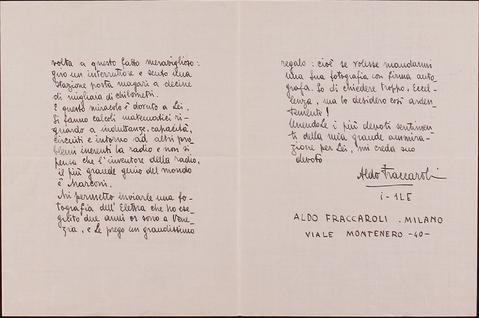 volta a questo fatto meraviglioso:
giro un interruttore e sento una
stazione posta magari a decine
di migliaia di chilometri.
E questo miracolo è dovuto a Lei.
Si fanno calcoli matematici ri-
guardo a induttanze, capacità,
circuiti e intorno ad altri pro
blemi inerenti la radio e non si
pensa che l'inventore della radio,
il più grande genio del mondo
è Marconi.
Mi permetto inviarle una fo-
tografia dell'Elettra che ho ese-
guito due anni or sono a Vene-
zia, e Le prego un grandissimo
regalo: cioè se volesse mandarmi
una sua fotografia con firma auto
grafa. So di chiedere troppo, Eccel-
lenza, ma lo desidero così arden-
temente!
Unendole i più devoti sentimen
ti della mia grande ammira-
zione per Lei, mi creda suo
devoto
Aldo Fraccaroli
i-1LE
ALDO FRACCAROLI . MILANO
VIALE MONTENERO -40-